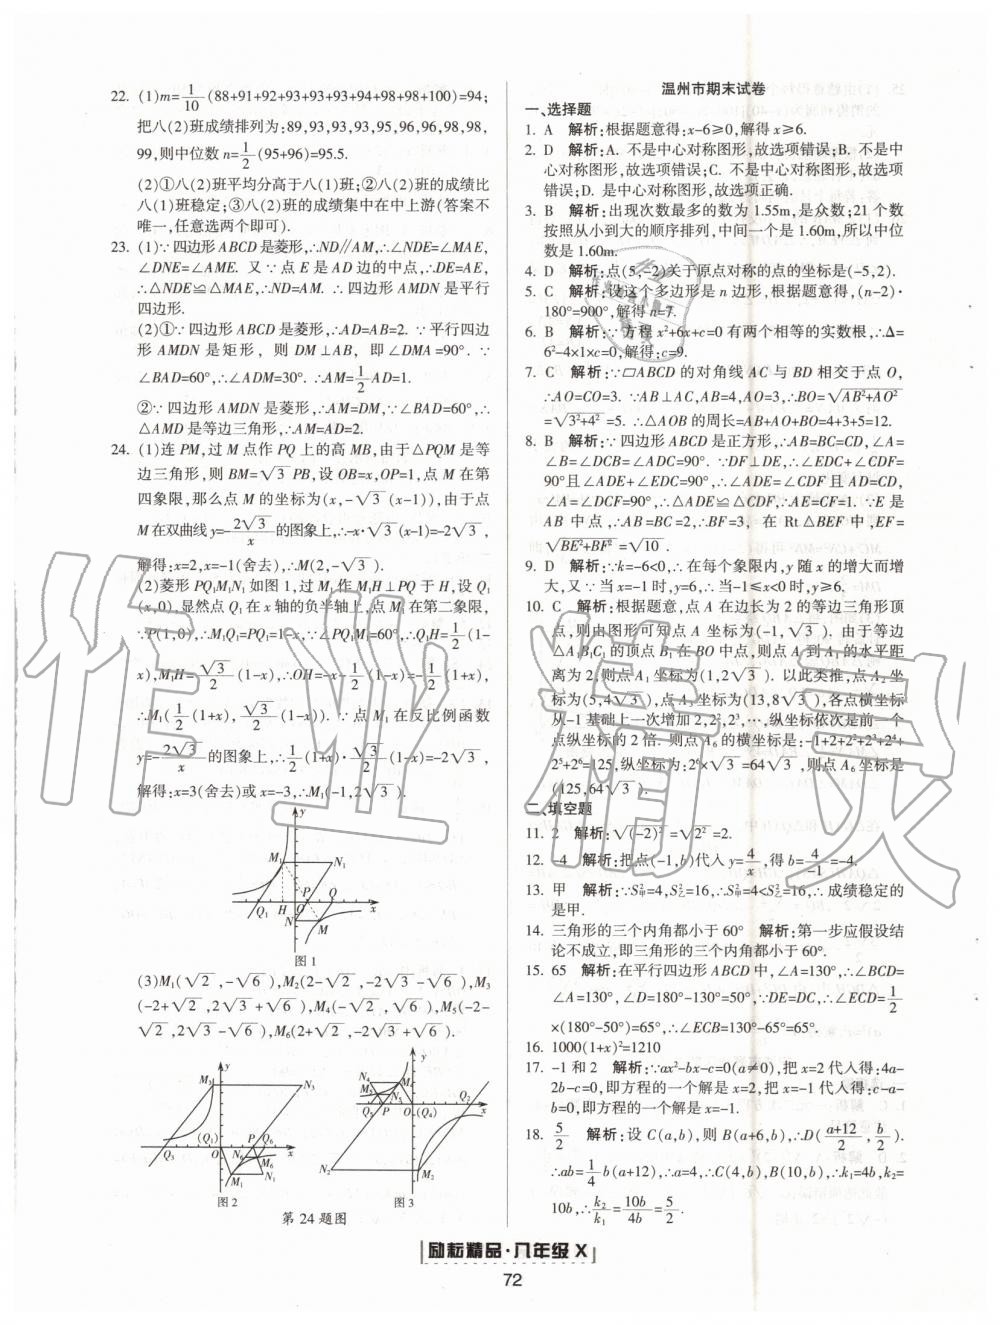 22. (1)m=1/10(88+91+92+93+93+93+94+98+98+100)=94;
把八(2)班成绩排列为:89,93,93,93,95,96,96,98,98,
99,则中位数 n=1/2(95+96)=95.5.
(2)①八(2)班平均分高于八(1)班;②八(2)班的成绩比
八(1)班稳定;③八(2)班的成绩集中在中上游(答案不
唯一,任意选两个即可).
23. (1)∵四边形 ABCD 是菱形,∴ND∥AM,∴∠NDE=∠MAE,
∠DNE=∠AME. 又∵点 E 是 AD 边的中点,∴DE=AE,
∴△NDE≌△MAE,∴ND=AM. ∴四边形 AMDN 是平行
四边形.
(2)①∵四边形 ABCD 是菱形,∴AD=AB=2. ∵平行四边
形 AMDN 是矩形, 则 DM⊥AB, 即∠DMA=90°. ∵
∠BAD=60°,∴∠ADM=30°. ∴AM=1/2AD=1.
②∵四边形 AMDN 是菱形,∴AM=DM,∵∠BAD=60°,∴
△AMD 是等边三角形,∴AM=AD=2.
24. (1)连 PM,过 M 点作 PQ 上的高 MB,由于△PQM 是等
边三角形,则 BM=√3 PB,设 OB=x,OP=1,点 M 在第
四象限,那么点 M 的坐标为(x,-√3 (x-1)),由于点
M 在双曲线 y=-2√3/x的图象上,∴-x·√3 (x-1)=-2√3,
解得:x=2,x=-1(舍去),∴M(2,-√3).
(2)菱形 PQ₁M₁N₁ 如图 1,过 M₁ 作 M₁H⊥PQ 于 H,设 Q₁
(x,0),显然点 Q₁ 在 x 轴的负半轴上,点 M₁ 在第二象限,
∵P(1,0),∴M₁Q₁=PQ₁=1-x,∵∠PQ₁M₁=60°,∴Q₁H=1/2(1-
x),M₁H=√3/2(1-x),∴OH=-x-1/2(1-x)=-1/2(1+x),
∴M₁(1/2(1+x),√3/2(1-x)). ∵点 M₁ 在反比例函数
y=-2√3/x的图象上,∴1/2(1+x)·√3/2(1-x)=-2√3,
解得:x=3(舍去)或 x=-3,∴M₁(-1,2√3).
y
M₁ N₁
P Q
Q₁ H O x
N M
图 1
(3)M₁(√2,-√6),M₂(2-√2,-2√3-√6),M₃
(-2+√2,2√3+√6),M₄(-√2,√6),M₅(-2-
√2,2√3-√6),M₆(2+√2,-2√3+√6).
y
M₃ N₃
(Q₁) P Q₆
Q₃ O x
N₆ M₆
M₁ N₁
图 2
y
N₄ M₄
N₅
Q₅ P O (Q₄) Q₂ x
N₂ M₂
图 3
第 24 题图
温州市期末试卷
一、选择题
1. A 解析:根据题意得:x-6≥0,解得 x≥6.
2. D 解析:A. 不是中心对称图形,故选项错误;B. 不是中
心对称图形,故选项错误;C. 不是中心对称图形,故选项
错误;D. 是中心对称图形,故选项正确.
3. B 解析:出现次数最多的数为 1.55m,是众数;21 个数
按照从小到大的顺序排列,中间一个是 1.60m,所以中位
数是 1.60m.
4. D 解析:点(5,-2)关于原点对称的点的坐标是(-5,2).
5. C 解析:设这个多边形是 n 边形,根据题意得,(n-2)·
180°=900°,解得 n=7.
6. B 解析:∵方程 x²+6x+c=0 有两个相等的实数根,∴Δ=
6²-4×1×c=0,解得:c=9.
7. C 解析:∵▱ABCD 的对角线 AC 与 BD 相交于点 O,
∴AO=CO=3. ∵AB⊥AC,AB=4,AO=3,∴BO=√(AB²+AO²)
=√(3²+4²) =5. ∴△AOB 的周长=AB+AO+BO=4+3+5=12.
8. B 解析:∵四边形 ABCD 是正方形,∴AB=BC=CD,∠A=
∠B=∠DCB=∠ADC=90°. ∵DF⊥DE,∴∠EDC+∠CDF=
90°且∠ADE+∠EDC=90°,∴∠ADE=∠CDF 且 AD=CD,
∠A=∠DCF=90°,∴△ADE≌△CDF,∴AE=CF=1. ∵E 是
AB 中点,∴AB=BC=2,∴BF=3, 在 Rt△BEF 中,EF=
√(BE²+BF²) =√10.
9. D 解析:∵k=-6<0,∴在每个象限内,y 随 x 的增大而增
大,又∵当 x=-1 时,y=6,∴当-1≤x<0 时,y≥6.
10. C 解析:根据题意,点 A 在边长为 2 的等边三角形顶
点,则由图形可知点 A 坐标为(-1,√3). 由于等边
△A₁B₁C₁ 的顶点 B₁ 在 BO 中点,则点 A₁ 到 A₁ 的水平距
离为 2,则点 A₁ 坐标为(1,2√3). 以此类推,点 A₂ 坐标
为(5,4√3),点 A₃ 坐标为(13,8√3),各点横坐标
从-1 基础上一次增加 2,2²,2³,…,纵坐标依次是前一个
点纵坐标的 2 倍. 则点 A₆ 的横坐标是:-1+2+2²+2³+2⁴+
2⁵+2⁶=125,纵坐标为:2⁶×√3=64√3,则点 A₆ 坐标是
(125,64√3).
二、填空题
11. 2 解析:√(-2)²=√2²=2.
12. -4 解析:把点(-1,b)代入 y=4/x,得 b=4/-1=-4.
13. 甲 解析:∵S²甲=4,S²乙=16,∴S²甲=4<S²乙=16,∴成绩稳定的
是甲.
14. 三角形的三个内角都小于 60° 解析:第一步应假设结
论不成立,即三角形的三个内角都小于 60°.
15. 65 解析:在平行四边形 ABCD 中,∠A=130°,∴∠BCD=
∠A=130°,∠D=180°-130°=50°,∵DE=DC,∴∠ECD=1/2
×(180°-50°)=65°,∴∠ECB=130°-65°=65°.
16. 1000(1+x)²=1210
17. -1 和 2 解析:∵ax²-bx-c=0(a≠0),把 x=2 代入得:4a-
2b-c=0,即方程的一个解是 x=2,把 x=-1 代入得:c-a-
b=0,即方程的一个解是 x=-1.
18. 5/2 解析:设 C(a,b),则 B(a+6,b),∴D(a+12/2,b/2).
∴ab=1/4b(a+12),∴a=4,∴C(4,b),B(10,b),∴k₁=4b,k₂=
10b,∴k₂/k₁=10b/4b=5/2.
励耘精品·八年级 X
72
作业精灵